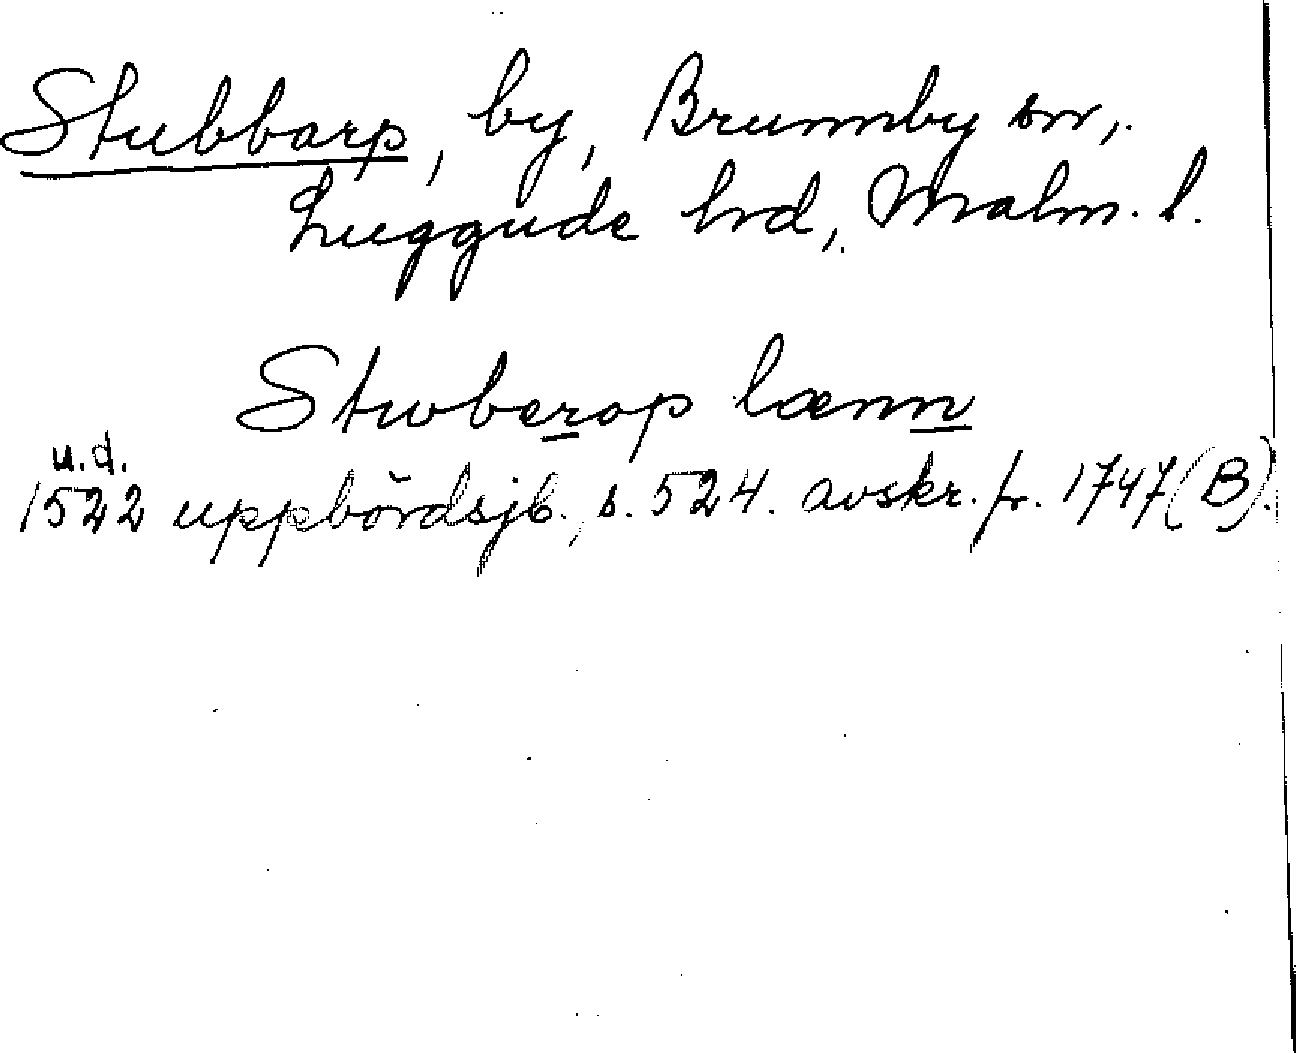 Stubbarp, by, Brunnby sn,
Luggude hd, Malm. l.
Stwberop lænn
u.d.
1522 uppbördsjb., s. 524. avskr. fr. 1747 (B).